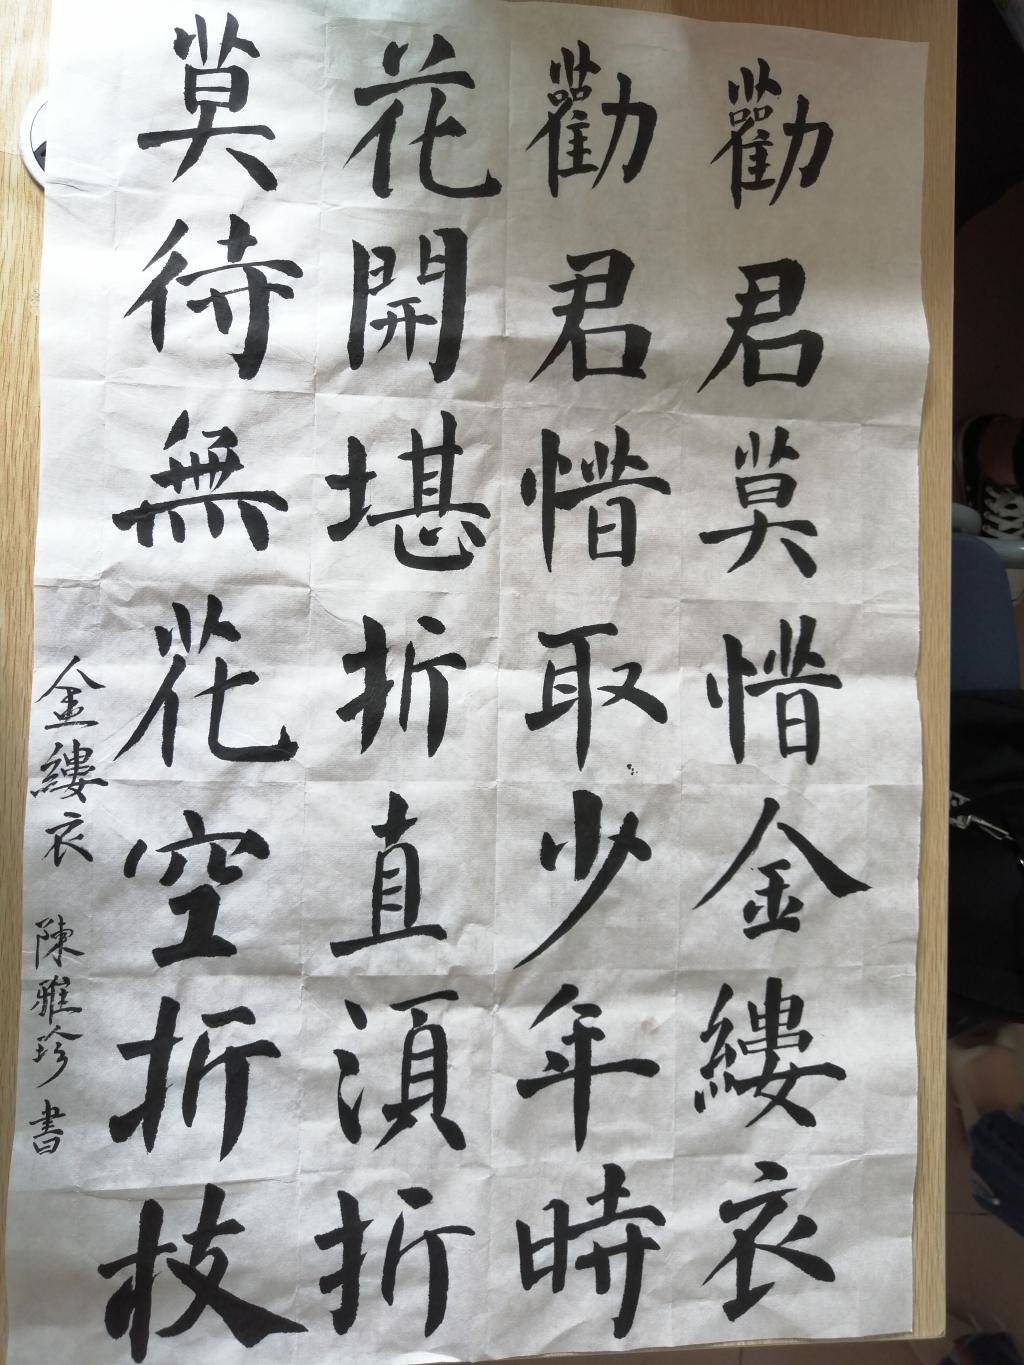 勸君莫惜金縷衣
勸君惜取少年時
花開堪折直須折
莫待無花空折枝
金縷衣 陳雅珍書